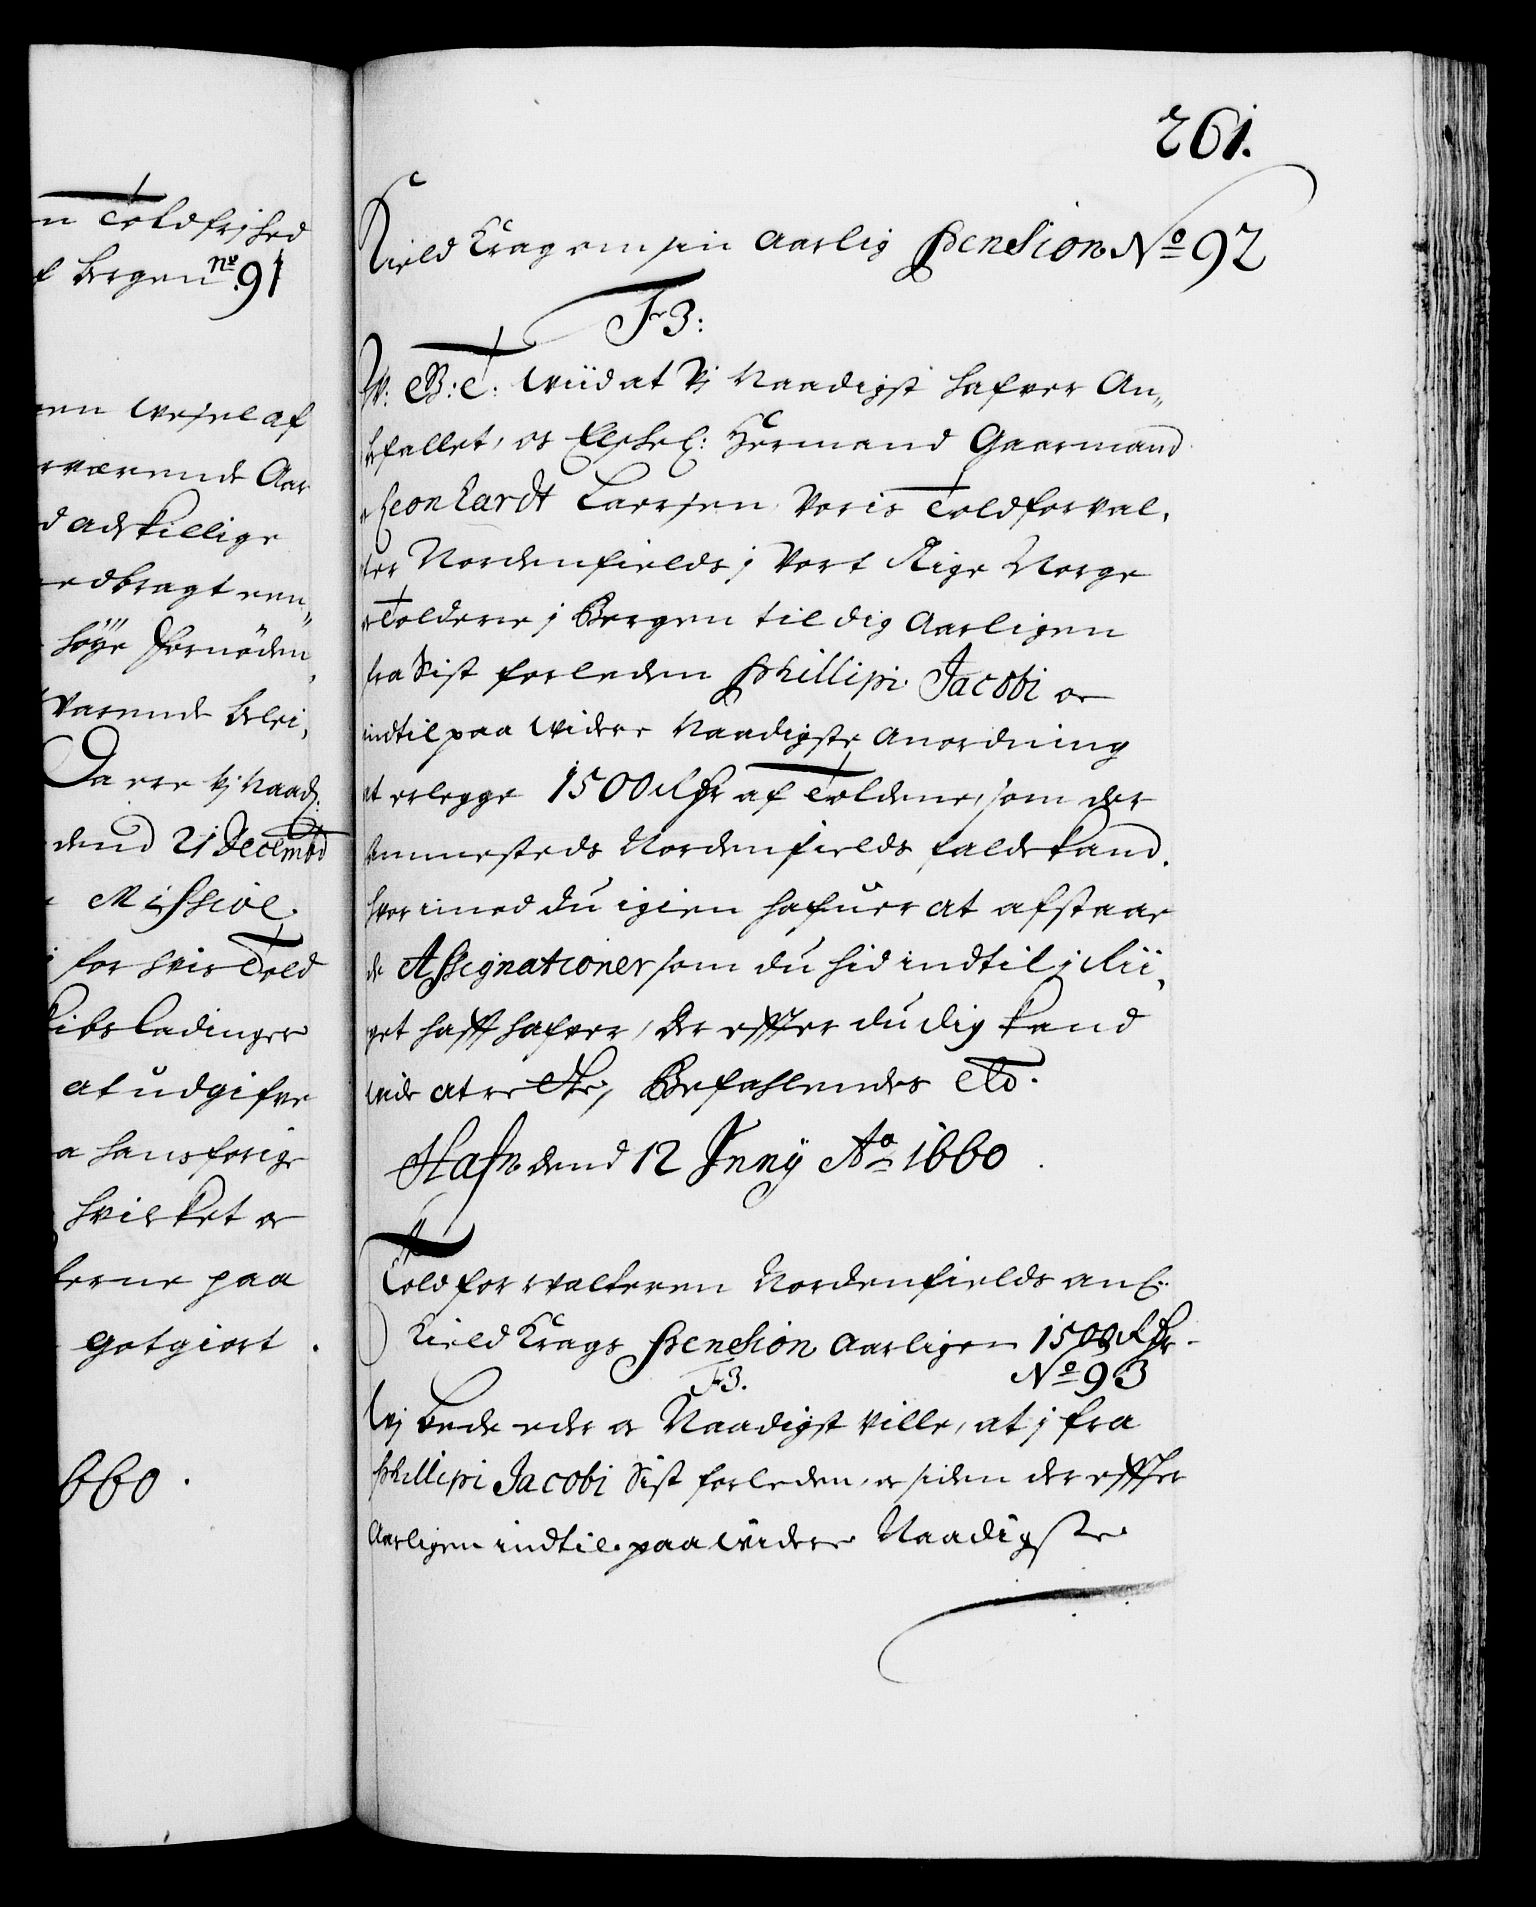 n Toldfrjhed
f Bergen no. 91
en Wexel af
rværende Aar
d adskillige
edbragt een„
høye fornöden,
Varende belei,
Da ere Vj Naad:
dend 21 Decembr
Missive.
for hvis Told
kibsladinger
at udgifve
a hans forige
hvilket oc
terne paa
gotgiort.
660.
261.
Kield Krag om sin Aarlig Pension No 92
F3:
W: G: T: Wiid at Vj Naadigst hafver An„
befallet, os Elschel: Hermand Gaarmand
oc Leonhardt Larsen Voris Toldforval,
ter Nordenfields j Vort Rige Norge
oc Toldere j Bergen til dig Aarligen
fra Sist forleden Phillipi Jacobi oc
indtil paa widere Naadigste Anordning
at erlegge 1500 Rdr af Toldene, som der
sammesteds Nordenfields falde kand.
hvorimod du igien hafuer at afstaae
de Assignationer som du hid indtil j Rii,
get hafft hafver, der effter du dig kand
wide at rette, Befahlendes etc.
Hafn. dend 12 Juny Ao 1660.
Toldforvalteren Nordenfields anl:
Kield Krags Pension Aarligen 1500 Rdr.
F3. No 93
Wj bede eder oc Naadigst ville, at j fra
Phillipi Jacobi Sist forleden, oc siden der effter
Aarligen indtil paa widere Naadigste